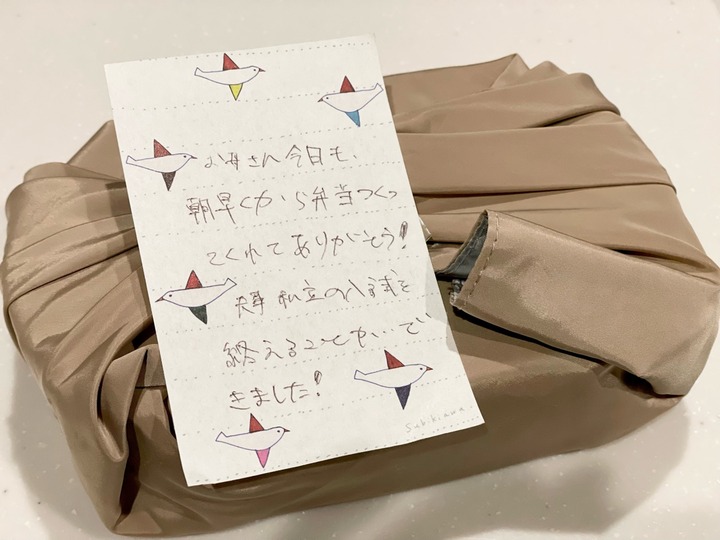 お母さん今日も、
朝早くから弁当つくっ
てくれてありがとう!
無事私立の入試を
終えることが…で
きました!
subikiawa